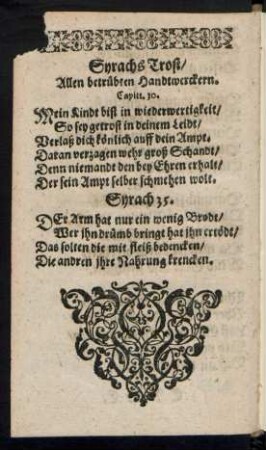 Syrachs Trost/
Allen betrübten Handtwerckern.
Capitt. 10.
Mein Kindt bist in wiederwertigkeit/
So sey getrost in deinem Leidt/
Verlaß dich könlich auff dein Ampt.
Daran verzagen wehr groß Schandt/
Denn niemandt den bey Ehren erhalt/
Der sein Ampt selber schmehen wolt.
Syrach 35.
DEr Arm hat nur ein wenig Brodt/
Wer ihn drümb bringt hat ihn ertödt/
Das solten die mit fleiß bedencken/
Die andren jhre Nahrung krencken.